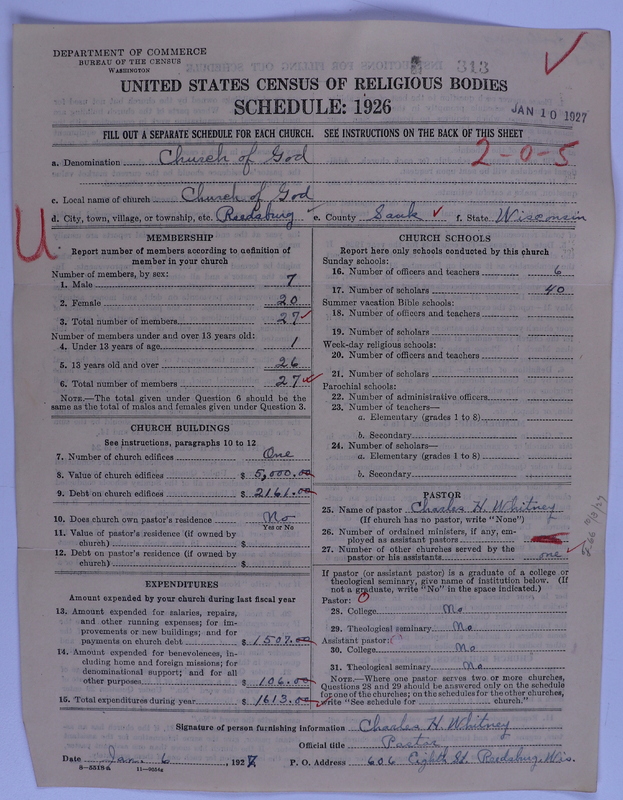 DEPARTMENT OF COMMERCE
BUREAU OF THE CENSUS
WASHINGTON
313
UNITED STATES CENSUS OF RELIGIOUS BODIES
SCHEDULE: 1926
JAN 10 1927
FILL OUT A SEPARATE SCHEDULE FOR EACH CHURCH. SEE INSTRUCTIONS ON THE BACK OF THIS SHEET
a. Denomination Church of God
2-0-5
c. Local name of church Church of God
d. City, town, village, or township, etc. Reedsburg e. County Sauk f. State Wisconsin
U
MEMBERSHIP
Report number of members according to definition of
member in your church
Number of members, by sex:
1. Male 7
2. Female 20
3. Total number of members 27
Number of members under and over 13 years old:
4. Under 13 years of age 1
5. 13 years old and over 26
6. Total number of members 27
NOTE.—The total given under Question 6 should be the
same as the total of males and females given under Question 3.
CHURCH BUILDINGS
See instructions, paragraphs 10 to 12
7. Number of church edifices One
8. Value of church edifices $ 5,000.00
9. Debt on church edifices $ 2161.00
10. Does church own pastor's residence No
Yes or No
11. Value of pastor's residence (if owned by
church) $
12. Debt on pastor's residence (if owned by
church) $
EXPENDITURES
Amount expended by your church during last fiscal year
13. Amount expended for salaries, repairs,
and other running expenses; for im-
provements or new buildings; and for
payments on church debt $ 1507.00
14. Amount expended for benevolences, in-
cluding home and foreign missions; for
denominational support; and for all
other purposes $ 106.00
15. Total expenditures during year $ 1613.00
CHURCH SCHOOLS
Report here only schools conducted by this church
Sunday schools:
16. Number of officers and teachers 6
17. Number of scholars 40
Summer vacation Bible schools:
18. Number of officers and teachers
19. Number of scholars
Week-day religious schools:
20. Number of officers and teachers
21. Number of scholars
Parochial schools:
22. Number of administrative officers
23. Number of teachers—
a. Elementary (grades 1 to 8)
b. Secondary
24. Number of scholars—
a. Elementary (grades 1 to 8)
b. Secondary
PASTOR
25. Name of pastor Charles H. Whitney
(If church has no pastor, write "None")
26. Number of ordained ministers, if any, em-
ployed as assistant pastors
27. Number of other churches served by the
pastor or his assistants one
If pastor (or assistant pastor) is a graduate of a college or
theological seminary, give name of institution below. (If
not a graduate, write "No" in the space indicated.)
Pastor:
28. College No
29. Theological seminary No
Assistant pastor:
30. College No
31. Theological seminary No
NOTE.—Where one pastor serves two or more churches,
Questions 28 and 29 should be answered only on the schedule
for one of the churches; on the schedules for the other churches,
write "See schedule for church."
Signature of person furnishing information Charles H. Whitney
Official title Pastor
Date Jan. 6, 1927 P. O. Address 606 Eighth St. Reedsburg, Wis.
8-5518a 11-9054a